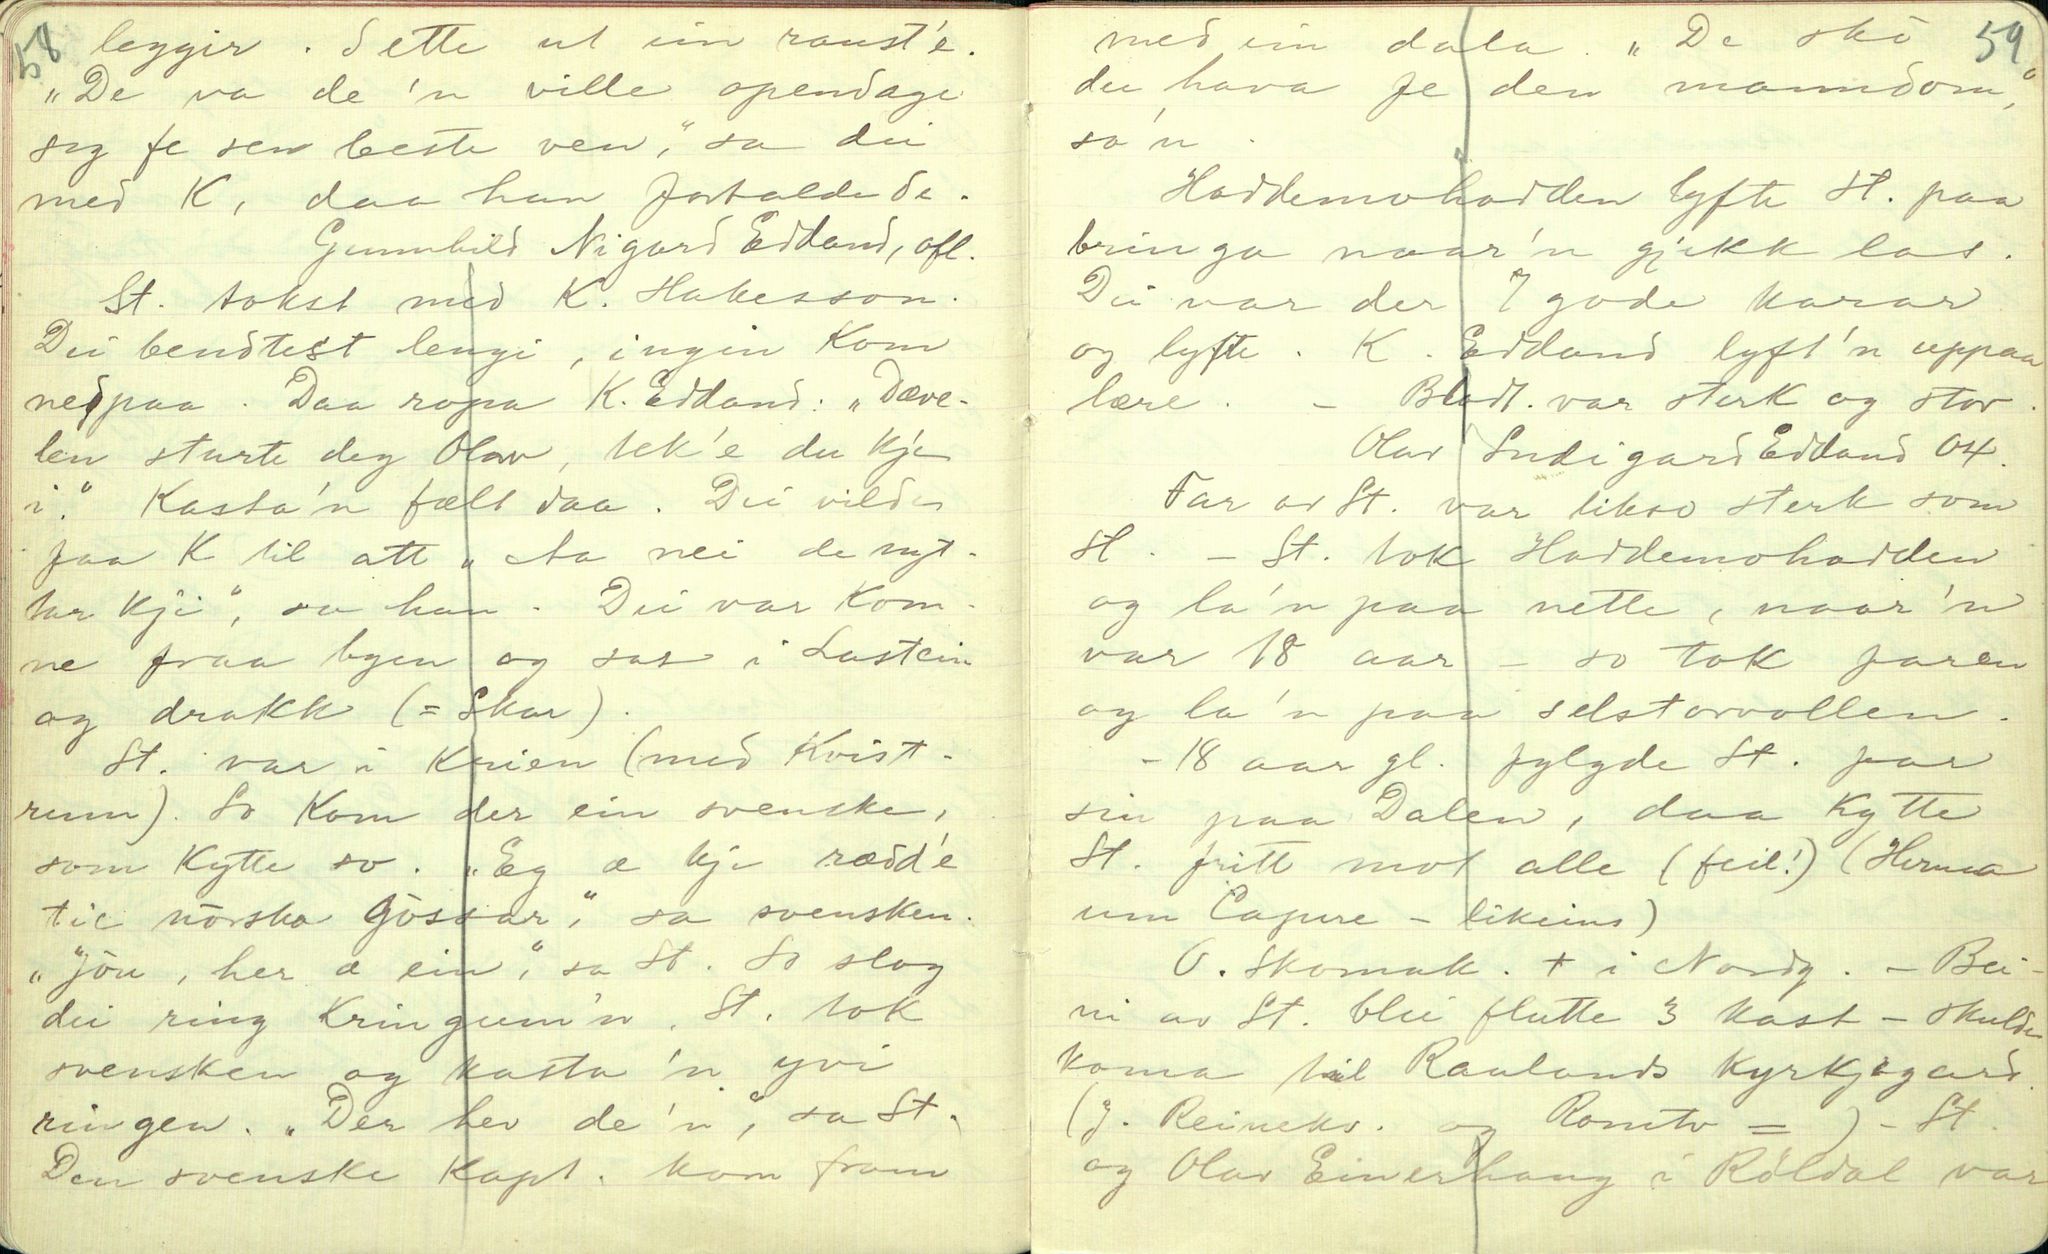 58
leggir. Sette ut ein raust'e.
„De va de 'n ville opendage
seg fe sen beste ven," sa dei
med K, daa han fortalde de.
Gunnhild Nigard Edland, ofl.
St. tokst med K. Hakesson.
Dei bendtest lengi, ingin kom
nedpaa. Daa ropa K. Edland: „Dæve-
len sturte deg Olav, tek'e du kje
i." Kasta'n fælt daa. Dei vilde
faa K til att „Aa nei de nyt-
tar kji", sa han. Dei var kom-
ne fraa byen og sas i Lastein
og drakk (= Skar).
St. var i Krien (med Kvist-
rum). So kom der ein svenske,
som kytte so. „Eg æ kje rædd'e
tie norska gossar," sa svensken.
„Jöu, her æ ein," sa St. So slog
dei ring kringum'n. St. tok
svensken og kasta 'n yvi
ringen. „Der hev de 'n", sa St.
Den svenske Kapt. kom fram
59
med ein dala. „De sko
du hava fe den manndom,"
sa'n.
Haddemohadden lyfte St. paa
bringa naar'n gjekk las.
Dei var der 7 gode karar
og lyfte. K. Edland lyft'n uppaa
lære. – Bladt. var sterk og stor.
Olav Sudigard Edland 04.
Far av St. var likso sterk som
St. – St. tok Haddemohadden
og la'n paa nette, naar'n
var 18 aar – so tok faren
og la'n paa selstovollen.
– 18 aar gl. fylgde St. far
sin paa Dalen, daa kytte
St. fritt mot alle (feil!) (Herma
um Capure – likeins)
O. Skomak. + i Nordg. – Bei-
ni av St. blei flutte 3 kast – skulde
koma til Raulands kyrkjegard.
(J. Reinekv. og Romtv = ) – St.
og Olav Einerhaug i Röldal var